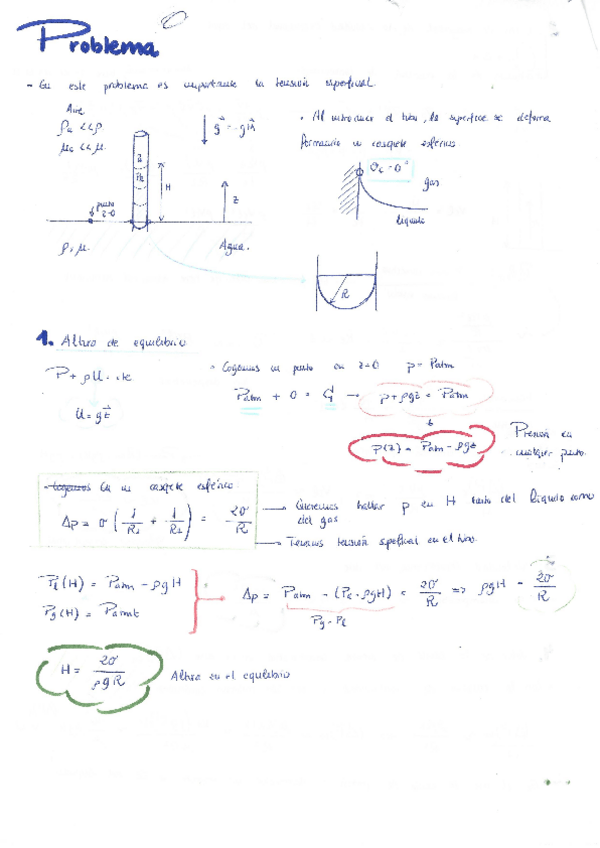 Problema
- En este problema es importante la tensión superficial.
Aire
ρa << ρ.
μa << μ.
g⃗ = -gk⃗
• Al introducir el tubo, la superficie se deforma
formando un casquete esférico
θc = 0°
gas
líquido
2
H
z
punto
z=0
ρ, μ.
Agua.
R
1. Altura de equilibrio
P + ρU = cte
U = gz
• Cogemos un punto en z=0 p = Patm
Patm + 0 = C1 → p + ρgz = Patm
p(z) = Patm - ρgz
Presión en
cualquier punto.
Cogemos En un casquete esférico
Δp = σ (1/R1 + 1/R2) = 2σ/R
→ Queremos hallar p en H tanto del líquido como
del gas
→ Tenemos tensión superficial en el tubo
Pl (H) = Patm - ρgH
Pg (H) = Patm
Δp = Patm - (Pl - ρgH) = 2σ/R => ρgH = 2σ/R
Pg - Pl
H = 2σ/ρgR
Altura en el equilibrio